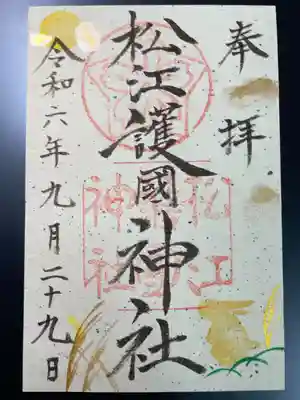 奉拝
松江護國神社
令和六年九月二十九日